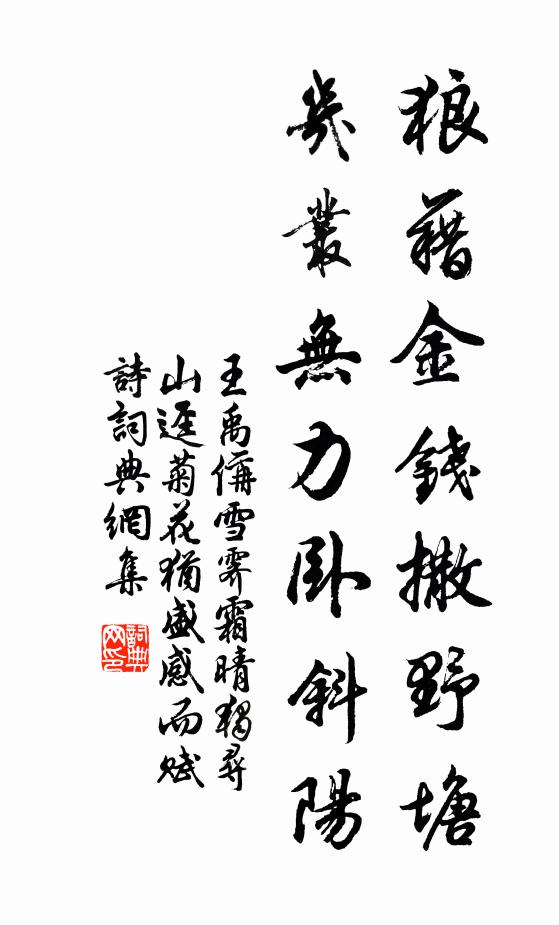 狼藉金錢撒野塘
幾叢無力臥斜陽
王禹偁雪霽霜晴獨尋
山逕菊花猶盛感而賦
詩詞典網集
詞典網印